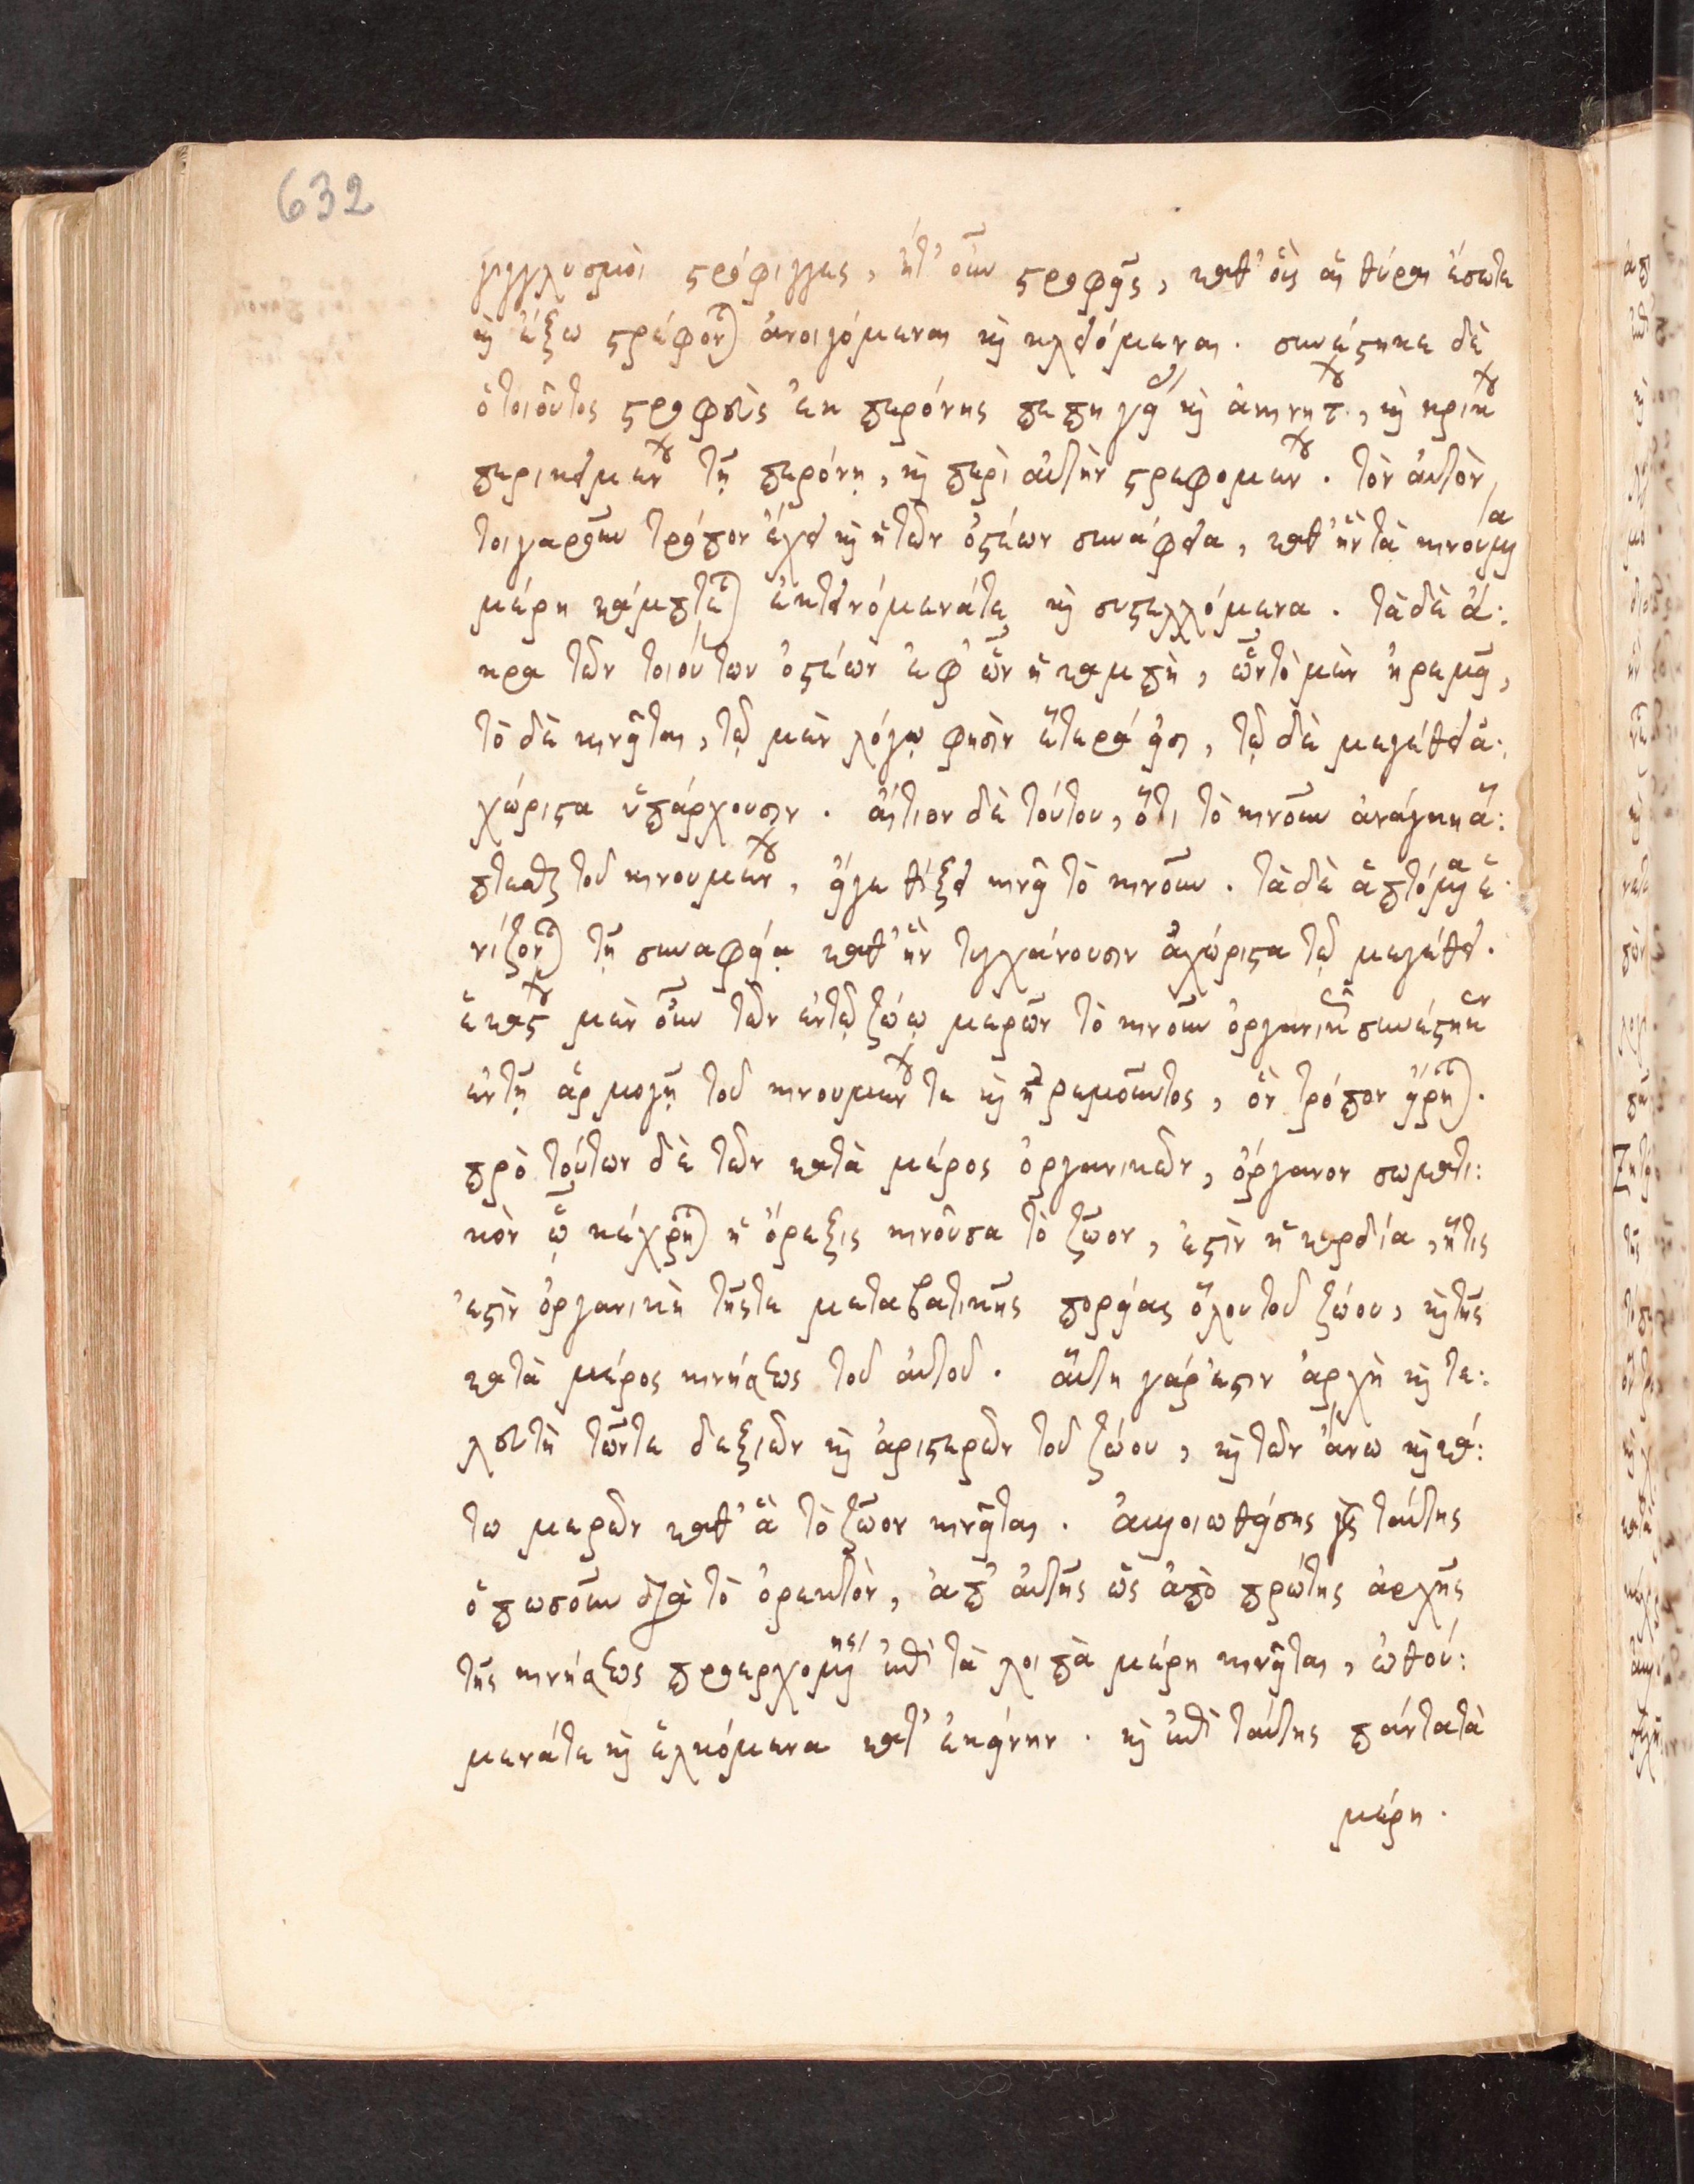 632
γιγγλυσμοὶ στρόφιγγες, εἴτ' οὖν στροφεῖς, καθ' οὓς αἱ θύραι ἔσωτε
καὶ ἔξω στρέφονται ἀνοιγόμεναι καὶ κλειόμεναι. συνέστηκε δὲ
ὁ τοιοῦτος στροφεὺς ἐκ περόνης πεπηγυίας καὶ ἀκινήτου, καὶ κρίκου
περικειμένου τῇ περόνῃ, καὶ περὶ αὐτὴν στρεφομένου. τὸν αὐτὸν
τοιγαροῦν τρόπον ἔχει καὶ ἡ τῶν ὀστέων συνάφεια, καθ' ἣν τὰ κινούμενα
μέρη κάμπτεται ἐκτεινόμενάτε καὶ συστελλόμενα. τὰ δὲ ἄ:
κρα τῶν τοιούτων ὀστέων ἐφ' ὧν ἡ καμπὴ, ὧν τὸ μὲν ἠρεμεῖ,
τὸ δὲ κινεῖται, τῷ μὲν λόγῳ φησὶν ἕτερά εἰσι, τῷ δὲ μεγέθει ἀ:
χώριστα ὑπάρχουσιν. αἴτιον δὲ τούτου, ὅτι τὸ κινοῦν ἀνάγκη ἅ:
πτεσθαι τοῦ κινουμένου, εἴγε θίξει κινεῖ τὸ κινοῦν. τὰ δὲ ἁπτόμενα ἑ:
νίζονται τῇ συναφείᾳ καθ' ἣν τυγχάνουσιν ἀχώριστα τῷ μεγέθει.
ἑκάστου μὲν οὖν τῶν ἐν τῷ ζώῳ μερῶν τὸ κινοῦν ὀργανικῶς συνέστηκεν
ἐν τῇ ἁρμογῇ τοῦ κινουμένου τε καὶ ἠρεμοῦντος, ὃν τρόπον εἴρηται.
πρὸ τούτων δὲ τῶν κατὰ μέρος ὀργανικῶν, ὄργανον σωματι:
κὸν ᾧ κέχρηται ἡ ὄρεξις κινοῦσα τὸ ζῶον, ἐστὶν ἡ καρδία, ἥτις
ἐστὶν ὀργανικὴ τῆςτε μεταβατικῆς πορείας ὅλου τοῦ ζώου, καὶ τῆς
κατὰ μέρος κινήσεως τοῦ αὐτοῦ. αὕτη γάρ ἐστιν ἀρχὴ καὶ τε:
λευτὴ τῶντε δεξιῶν καὶ ἀριστερῶν τοῦ ζώου, καὶ τῶν ἄνω καὶ κά:
τω μερῶν καθ' ἃ τὸ ζῶον κινεῖται. ἀλλοιωθείσης γὰρ ταύτης
ὁπωσοῦν διὰ τὸ ὀρεκτὸν, ἀπ' αὐτῆς ὡς ἀπὸ πρώτης ἀρχῆς
τῆς κινήσεως προερχομένης ἐπὶ τὰ λοιπὰ μέρη κινεῖται, ὠθού:
μενάτε καὶ ἑλκόμενα κατ' ἐκείνην. καὶ ἐπὶ ταύτης πάντα τὰ
μέρη.